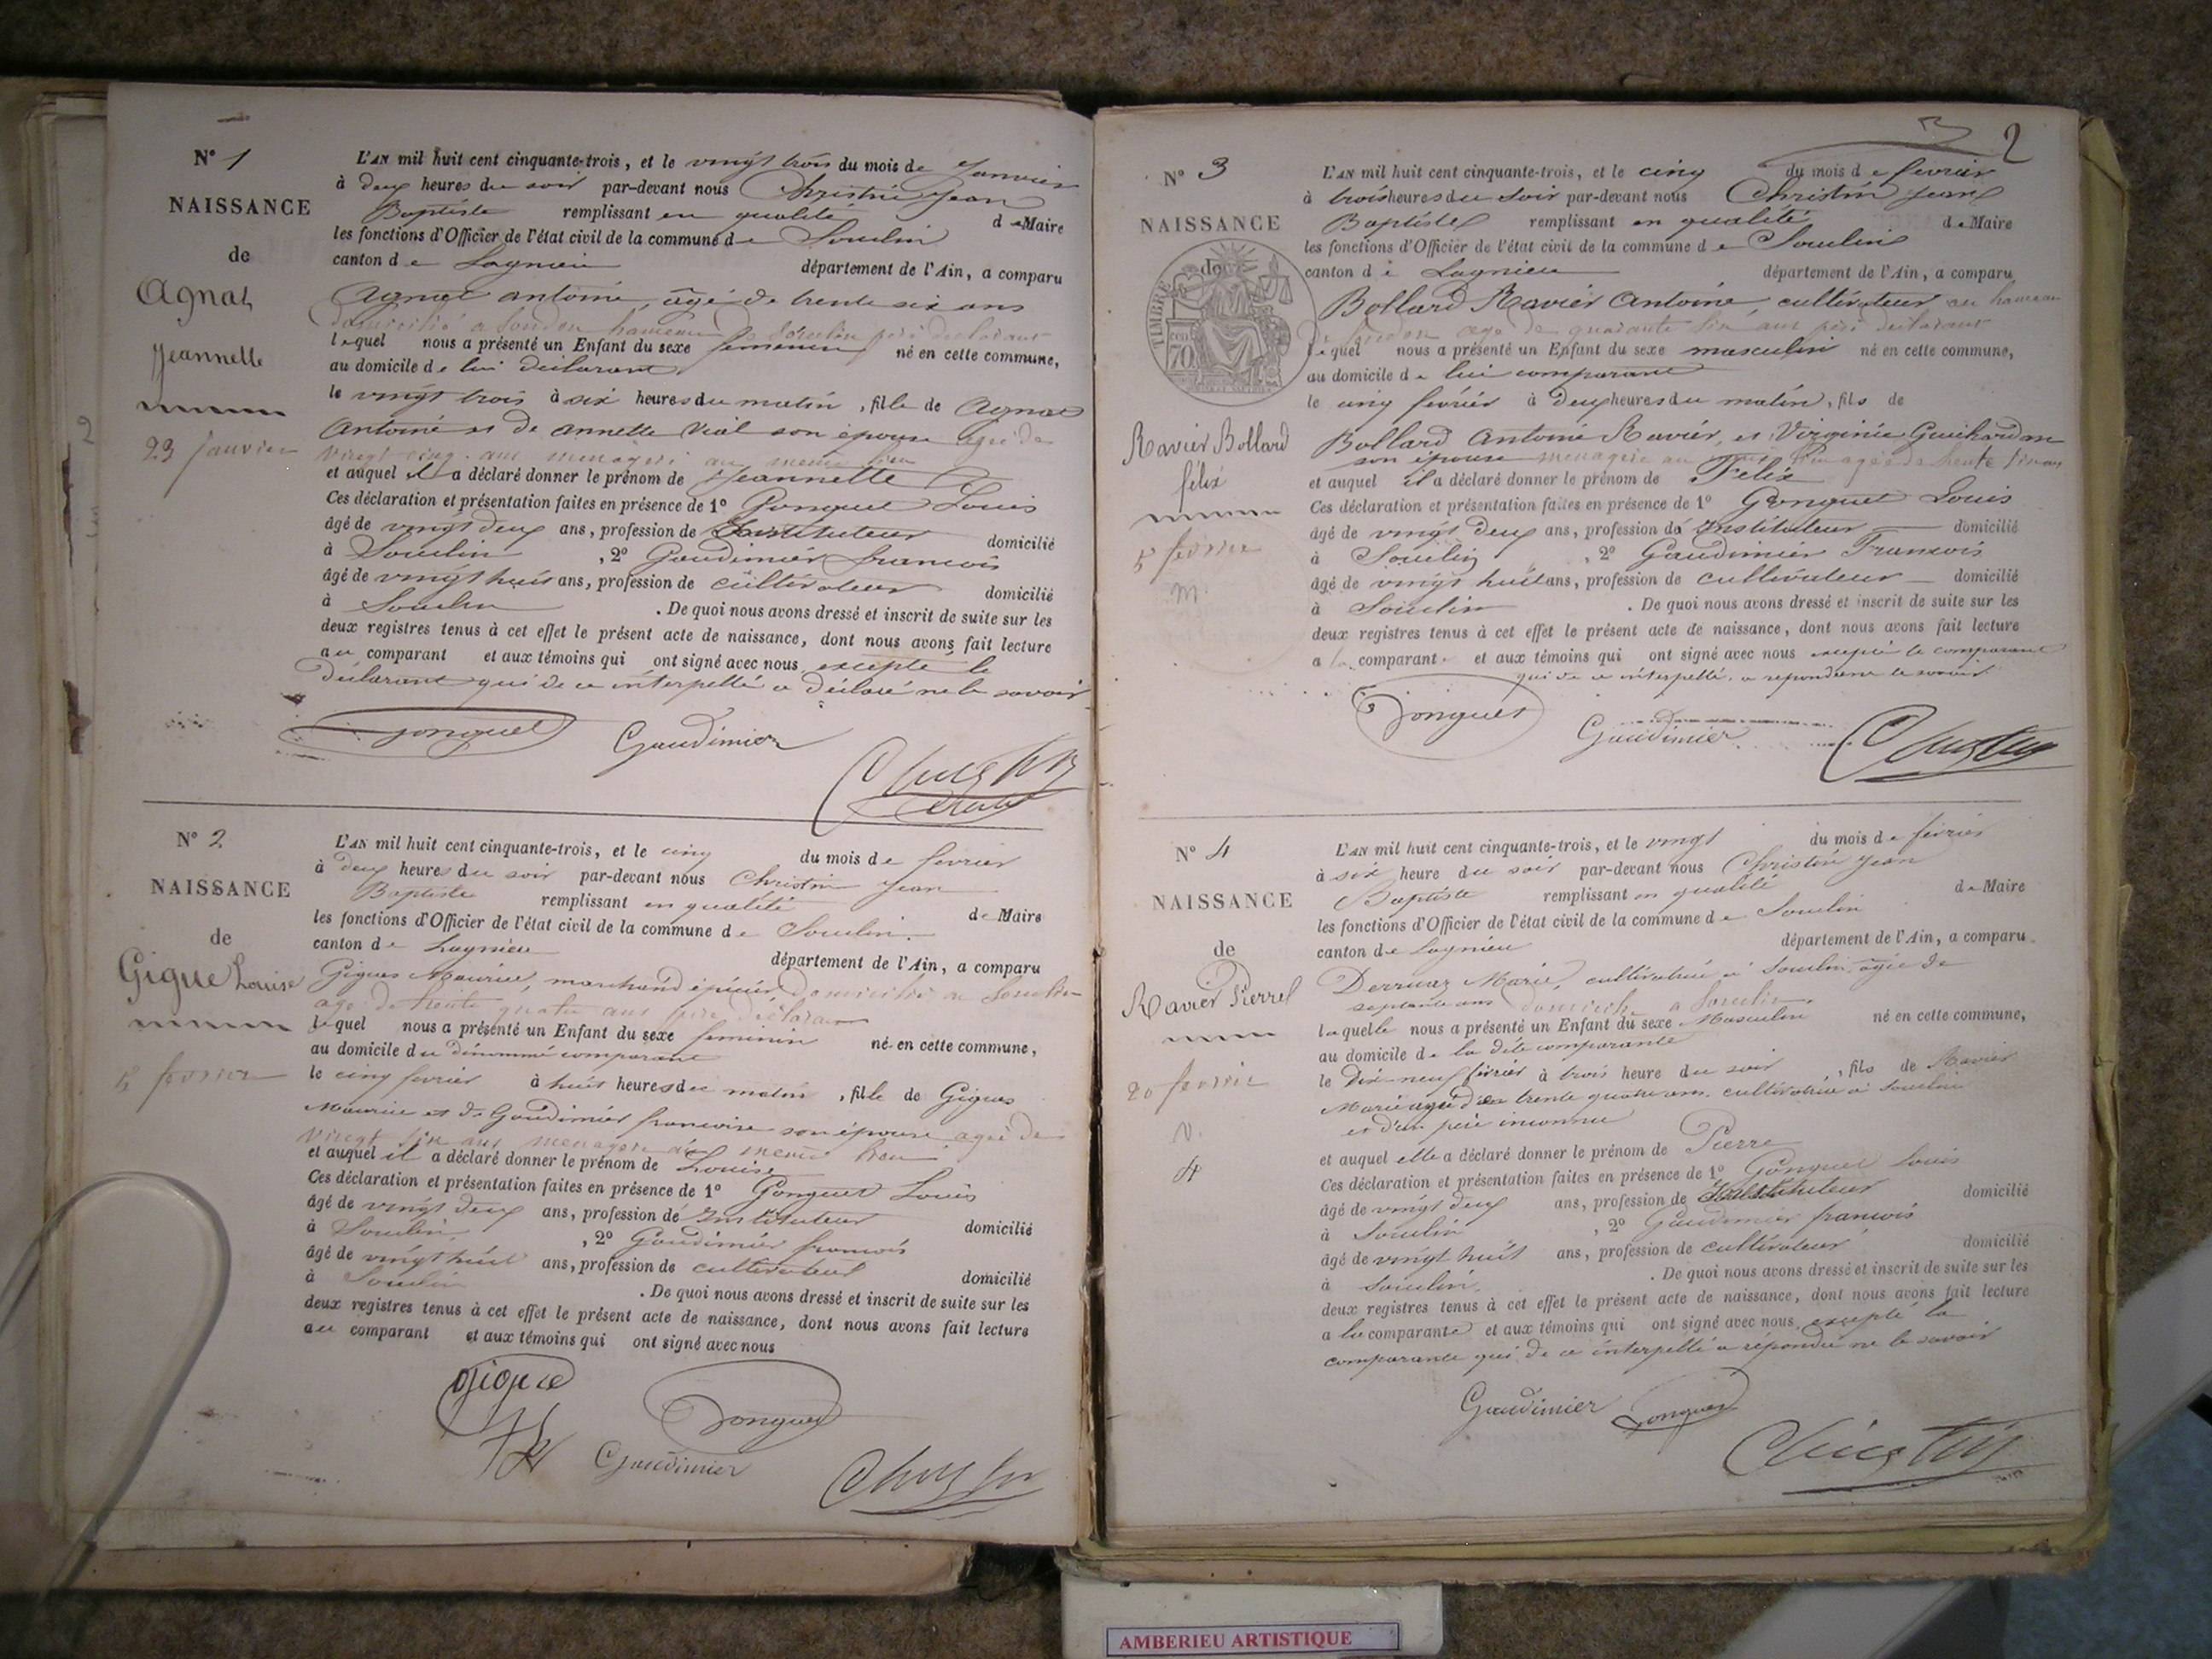 N° 1
NAISSANCE
de
Agnat
Jeannette
23 Janvier
L'AN mil huit cent cinquante-trois, et le vingt trois du mois de Janvier
à deux heures du soir par-devant nous Christin Jean
Baptiste remplissant en qualité de Maire
les fonctions d'Officier de l'état civil de la commune de Souclin
canton de Lagnieu département de l'Ain, a comparu
Agnat antoine, âgé de trente six ans
domicilié a Soudon hameau de Souclin père declarant
lequel nous a présenté un Enfant du sexe feminin né en cette commune,
au domicile de lui declarant
le vingt trois à six heures du matin, fille de Agnat
Antoine et de annette Vial son épouse agée de
vingt cinq ans menagère au meme lieu
et auquel il a déclaré donner le prénom de Jeannette
Ces déclaration et présentation faites en présence de 1° Gonguet Louis
âgé de vingt deux ans, profession de Instituteur domicilié
à Souclin, 2° Gaudimier francois
âgé de vingt huit ans, profession de cultivateur domicilié
à Souclin. De quoi nous avons dressé et inscrit de suite sur les
deux registres tenus à cet effet le présent acte de naissance, dont nous avons fait lecture
au comparant et aux témoins qui ont signé avec nous excepté le
declarant qui de ce interpellé a déclaré ne le savoir
Gonguet Gaudimier Christin
N° 2
NAISSANCE
de
Gigue Louise
5 fevrier
L'AN mil huit cent cinquante-trois, et le cinq du mois de fevrier
à deux heures du soir par-devant nous Christin Jean
Baptiste remplissant en qualité de Maire
les fonctions d'Officier de l'état civil de la commune de Souclin
canton de Lagnieu département de l'Ain, a comparu
Gigues Maurice, marchand épicier, domicilié a Souclin
agé de trente quatre ans père declarant
lequel nous a présenté un Enfant du sexe feminin né en cette commune,
au domicile du dénommé comparant
le cinq fevrier à huit heures du matin, fille de Gigues
Maurice et de Gaudimier francoise son épouse agée de
vingt six ans menagère au meme lieu
et auquel il a déclaré donner le prénom de Louise
Ces déclaration et présentation faites en présence de 1° Gonguet Louis
âgé de vingt deux ans, profession de Instituteur domicilié
à Souclin, 2° Gaudimier francois
âgé de vingt huit ans, profession de cultivateur domicilié
à Souclin. De quoi nous avons dressé et inscrit de suite sur les
deux registres tenus à cet effet le présent acte de naissance, dont nous avons fait lecture
au comparant et aux témoins qui ont signé avec nous
Gigue Gonguet
Gaudimier Christin
2
N° 3
NAISSANCE
de
TIMBRE
70
Ravier Bollard
félix
5 fevrier
m.
L'AN mil huit cent cinquante-trois, et le cinq du mois de fevrier
à trois heures du soir par-devant nous Christin Jean
Baptiste remplissant en qualité de Maire
les fonctions d'Officier de l'état civil de la commune de Souclin
canton de Lagnieu département de l'Ain, a comparu
Bollard Ravier Antoine, cultivateur au hameau
de Soudon agé de quarante six ans père declarant
lequel nous a présenté un Enfant du sexe masculin né en cette commune,
au domicile de lui comparant
le cinq fevrier à deux heures du matin, fils de
Bollard Antoine Ravier, et Virginie Guichardan
son épouse menagère au lieu agée de trente six ans
et auquel il a déclaré donner le prénom de Felix
Ces déclaration et présentation faites en présence de 1° Gonguet Louis
âgé de vingt deux ans, profession de Instituteur domicilié
à Souclin, 2° Gaudimier Francois
âgé de vingt huit ans, profession de cultivateur domicilié
à Souclin. De quoi nous avons dressé et inscrit de suite sur les
deux registres tenus à cet effet le présent acte de naissance, dont nous avons fait lecture
a comparant et aux témoins qui ont signé avec nous excepté le comparant
qui de ce interpellé, a repondu ne le savoir
Gonguet Gaudimier Christin
N° 4
NAISSANCE
de
Ravier Pierre
20 fevrier
V.
4
L'AN mil huit cent cinquante-trois, et le vingt du mois de fevrier
à six heure du soir par-devant nous Christin Jean
Baptiste remplissant en qualité de Maire
les fonctions d'Officier de l'état civil de la commune de Souclin
canton de Lagnieu département de l'Ain, a comparu
Derruaz Marie, cultivatrice à Souclin, agée de
septante ans domicilié a Souclin
laquelle nous a présenté un Enfant du sexe Masculin né en cette commune,
au domicile de la dite comparante
le dix neuf fevrier à trois heure du soir, fils de Ravier
Marie agée de trente quatre ans cultivatrice à Souclin
et d'un père inconnu
et auquel elle a déclaré donner le prénom de Pierre
Ces déclaration et présentation faites en présence de 1° Gonguet Louis
âgé de vingt deux ans, profession de Instituteur domicilié
à Souclin, 2° Gaudimier francois
âgé de vingt huit ans, profession de cultivateur domicilié
à Souclin. De quoi nous avons dressé et inscrit de suite sur les
deux registres tenus à cet effet le présent acte de naissance, dont nous avons fait lecture
a la comparante et aux témoins qui ont signé avec nous excepté la
comparante qui de ce interpellé a répondu ne le savoir
Gaudimier Gonguet
Christin
AMBERIEU ARTISTIQUE